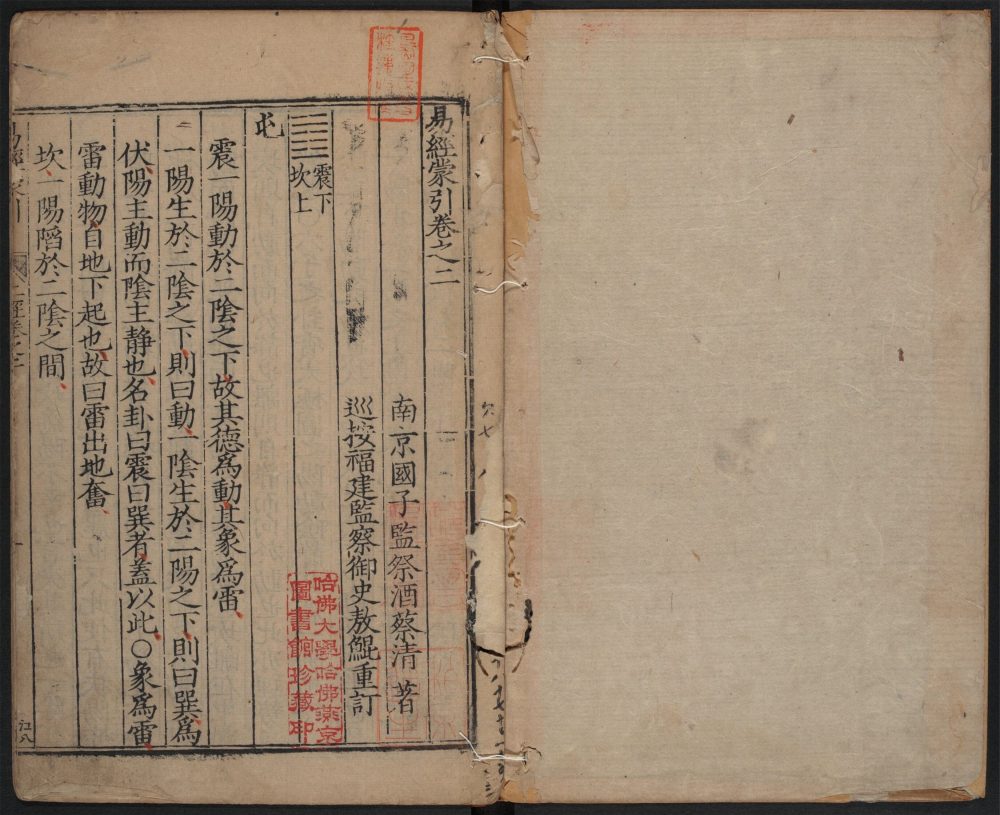 易經蒙引卷之二
南京國子監祭酒蔡清著
巡按福建監察御史敖鯤重訂
震下
坎上
屯
震一陽動於二陰之下、故其德為動、其象為雷、
一陽生於二陰之下、則曰動、一陰生於二陽之下、則曰巽、為
伏、陽主動而陰主靜也、名卦曰震曰巽者、蓋以此、○象為雷、
雷動物、自地下起也、故曰雷出地奮、
坎、一陽陷於二陰之間、
哈佛大學哈佛燕京
圖書館珍藏印